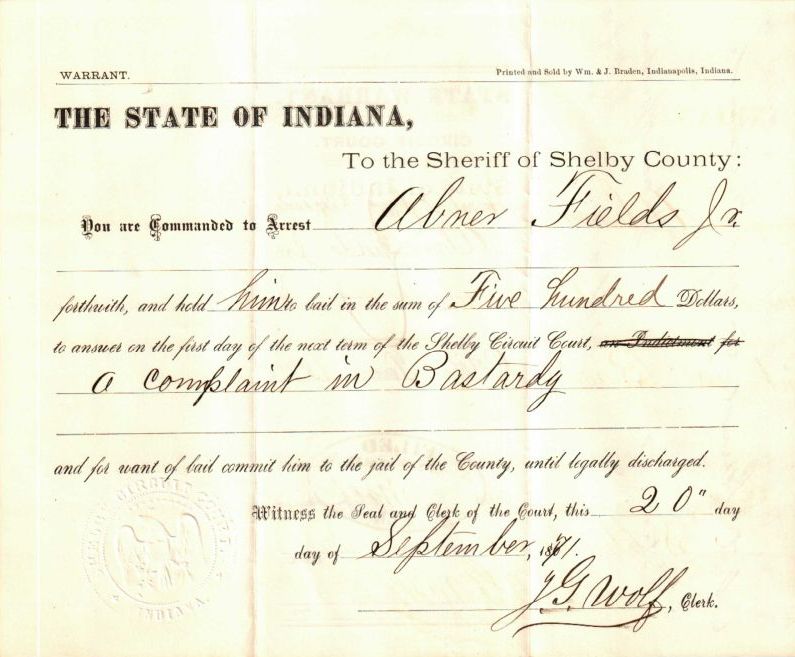 WARRANT.
Printed and Sold by Wm. & J. Braden, Indianapolis, Indiana.
THE STATE OF INDIANA,
To the Sheriff of Shelby County:
You are Commanded to Arrest Abner Fields Jr.
forthwith, and hold him to bail in the sum of Five hundred Dollars,
to answer on the first day of the next term of the Shelby Circuit Court, an Indictment for
a complaint in Bastardy
and for want of bail commit him to the jail of the County, until legally discharged.
Witness the Seal and Clerk of the Court, this 20" day
day of September, 1871.
J G. Wolf, Clerk.
CIRCUIT COURT.
INDIANA.